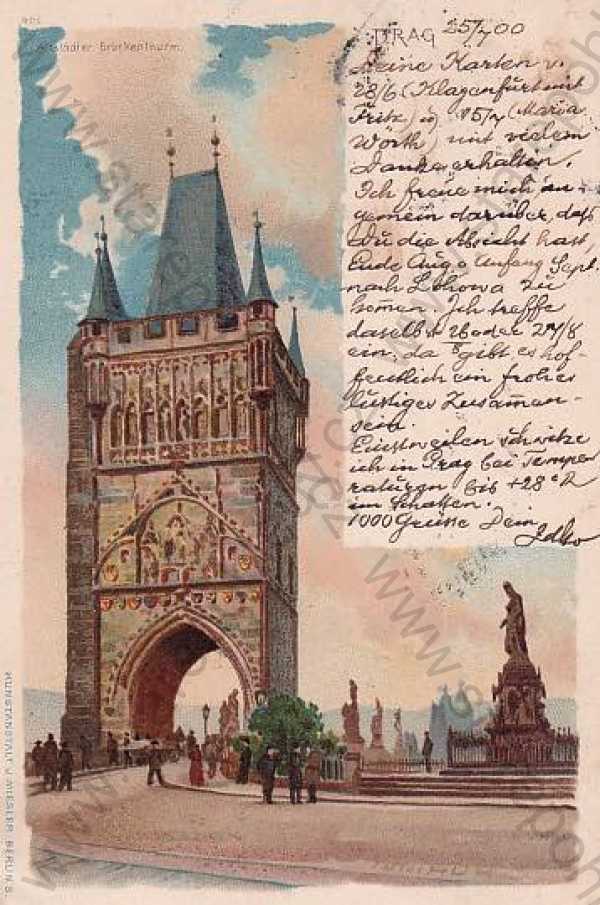 Altstädter Brückenthurm.
PRAG 25/7 00
Deine Karten v.
28/6 (Klagenfurt mit
Fritz) u 15/7 (Maria
Wörth) mit vielem
Danke erhalten.
Ich freue mich un-
gemein darüber, daß
Du die Absicht hast,
Ende Aug o Anfang Sept.
nach Lchowa zu
komen. Ich treffe
daselbst 26 oder 27/8
ein, da gibt es hof-
fentlich ein frohes
lustiges Zusamen-
sein.
Einstweilen schwitze
ich in Prag bei Tempe
raturen bis +28°R
im Schatten.
1000 Grüsse Dein
KUNSTANSTALT J. MIESLER, BERLIN S.